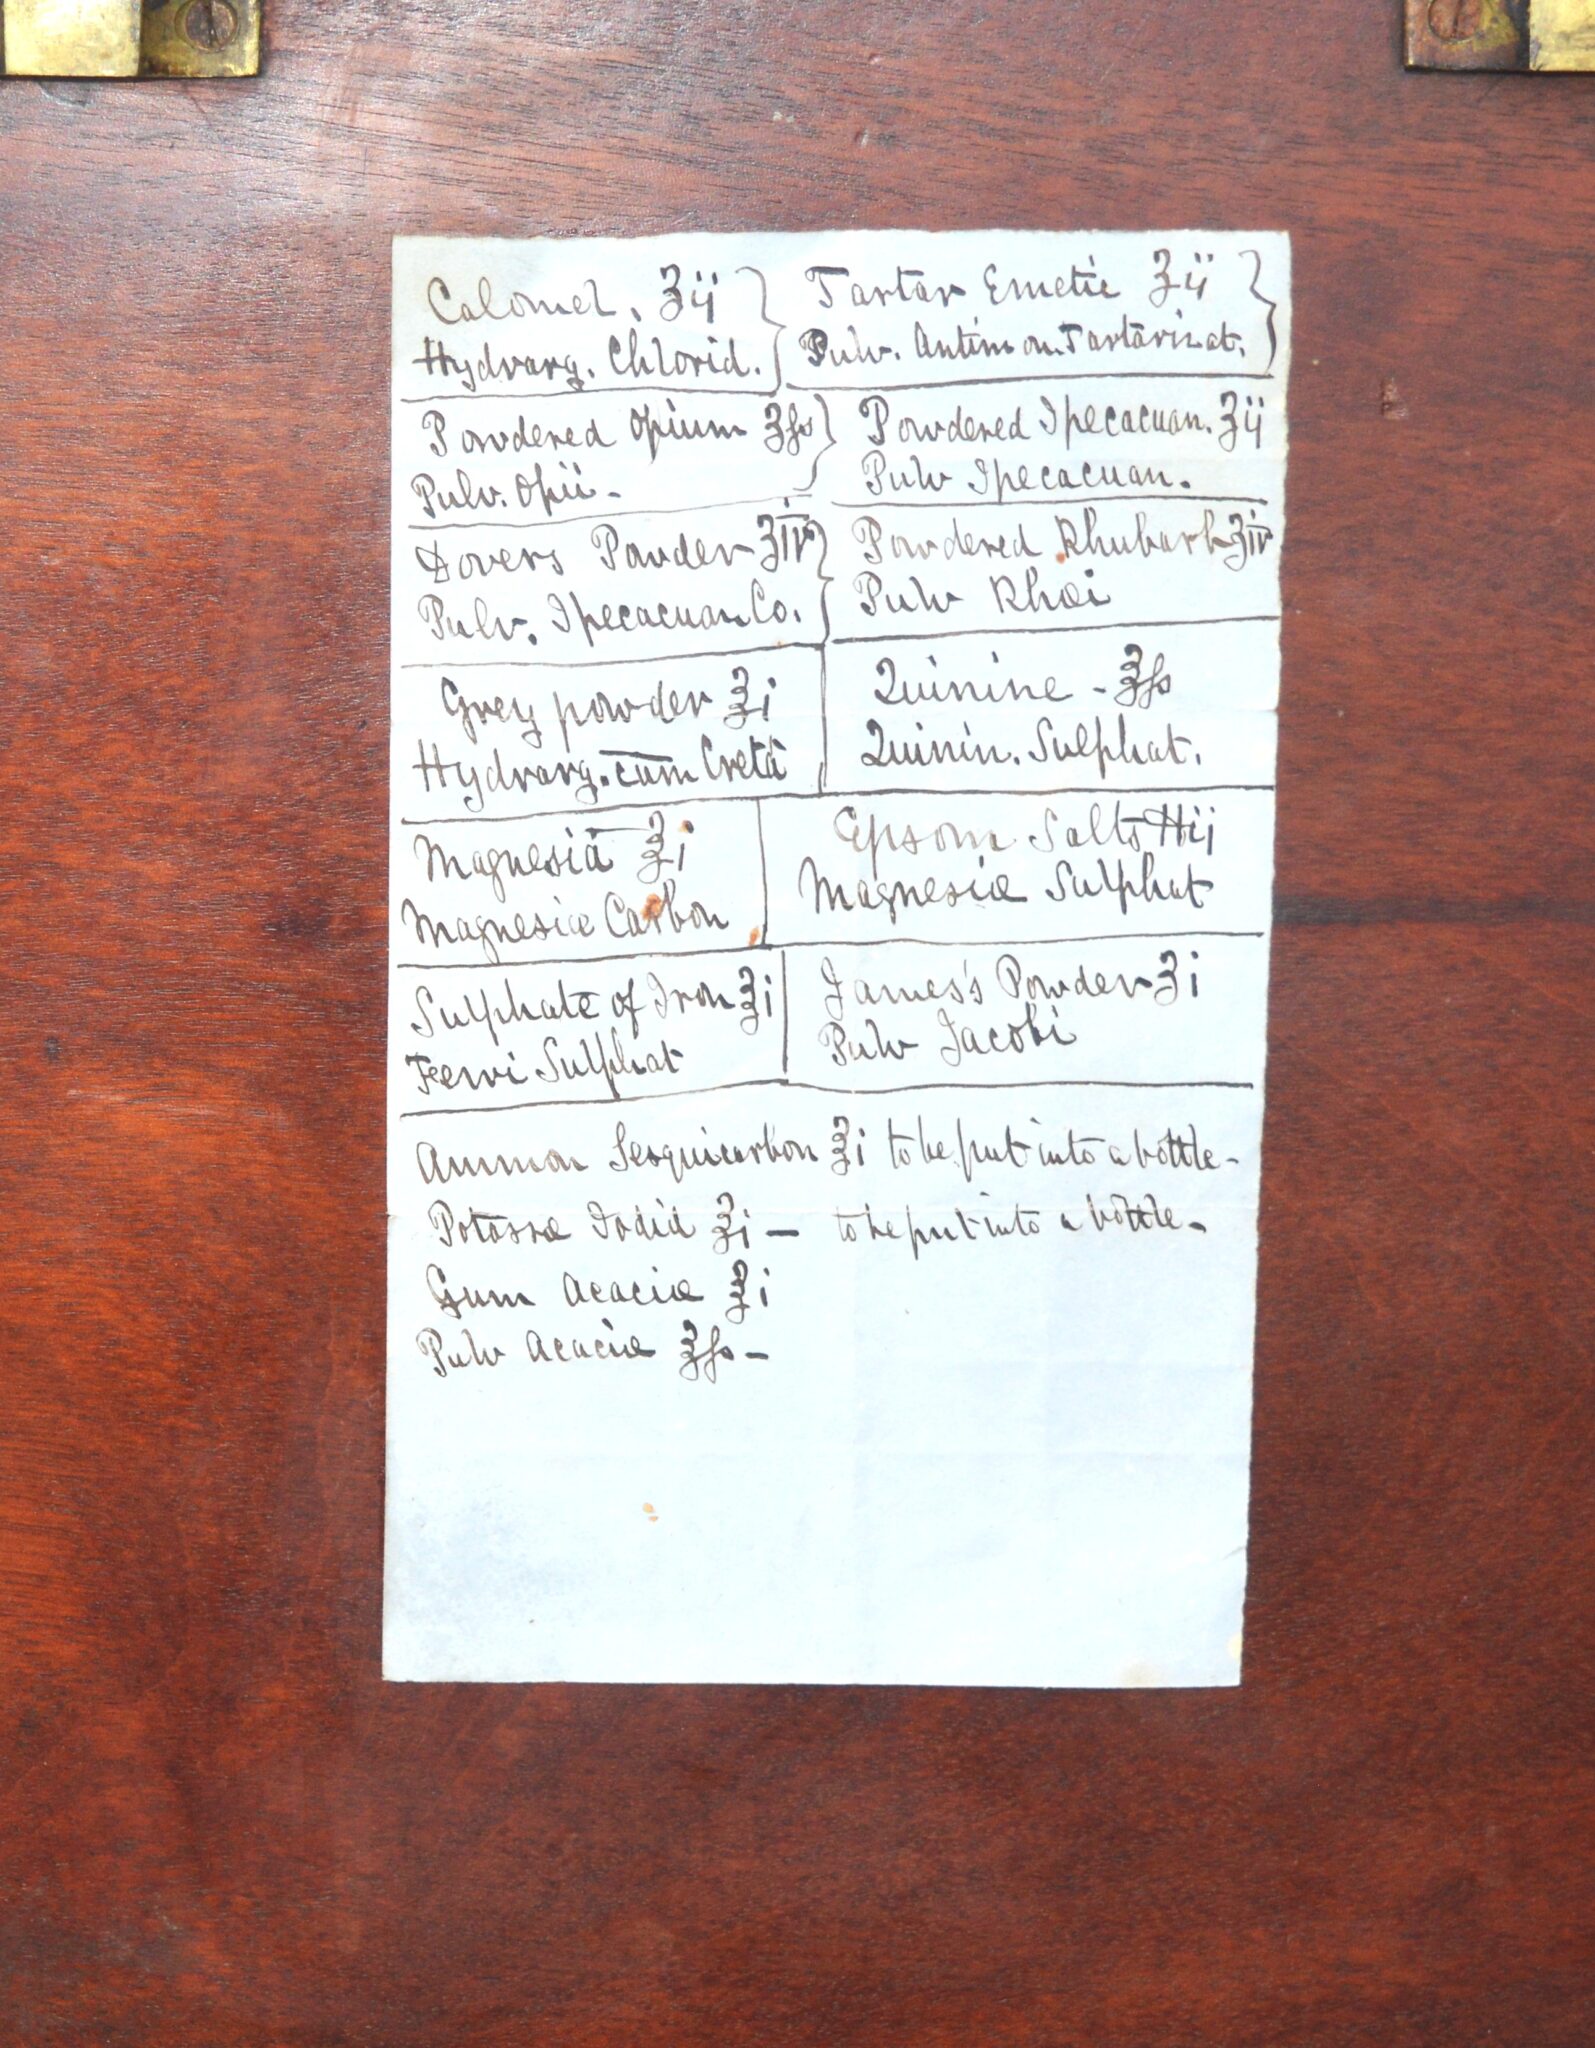 Calomel. ʒij
Hydrarg. Chlorid.
Tartar Emetic ʒij
Pulv. Antimon. Tartarizat.
Powdered Opium ʒſs
Pulv. Opii -
Powdered Ipecacuan. ʒij
Pulv Ipecacuan.
Dovers Powder ʒiv
Pulv. Ipecacuan Co.
Powdered Rhubarb ʒiv
Pulv Rhœi
Grey powder ℥i
Hydrarg. cum Cretâ
Quinine - ℥ſs
Quinin. Sulphat.
Magnesia ℥i
Magnesiæ Carbon
Epsom Salts ℔ij
Magnesiæ Sulphat
Sulphate of Iron ℥i
Ferri Sulphat
James's Powder ʒi
Pulv Jacobi
Ammon Sesquicarbon ℥i to be put into a bottle -
Potassæ Iodid ℥i — to be put into a bottle -
Gum Acaciæ ℥i
Pulv Acaciæ ℥ſs -